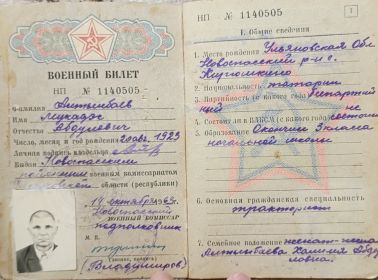 ВОЕННЫЙ БИЛЕТ
НП № 1140505
Фамилия
Имя Мукадэс
Отчество Абдулевич
Число, месяц и год рождения 20 авг. 1923
Личная подпись владельца
Выдан Новоспасским
районным военным комиссариатом
области (республики)
19 октября 1963 г.
Новоспасский
военный комиссар
подполковник
М. П.
(Владимиров)
НП № 1140505
1
I. Общие сведения
1. Место рождения Ульяновская Обл.
Новоспасский р-н с.
2. Национальность татарин
3. Партийность (с какого года) беспартий
ный
4. Состоял ли в ВЛКСМ (с какого года) не состоял
5. Образование Окончил 3 класса
начальной школы
6. Основная гражданская специальность
тракторист
7. Семейное положение женат-жена